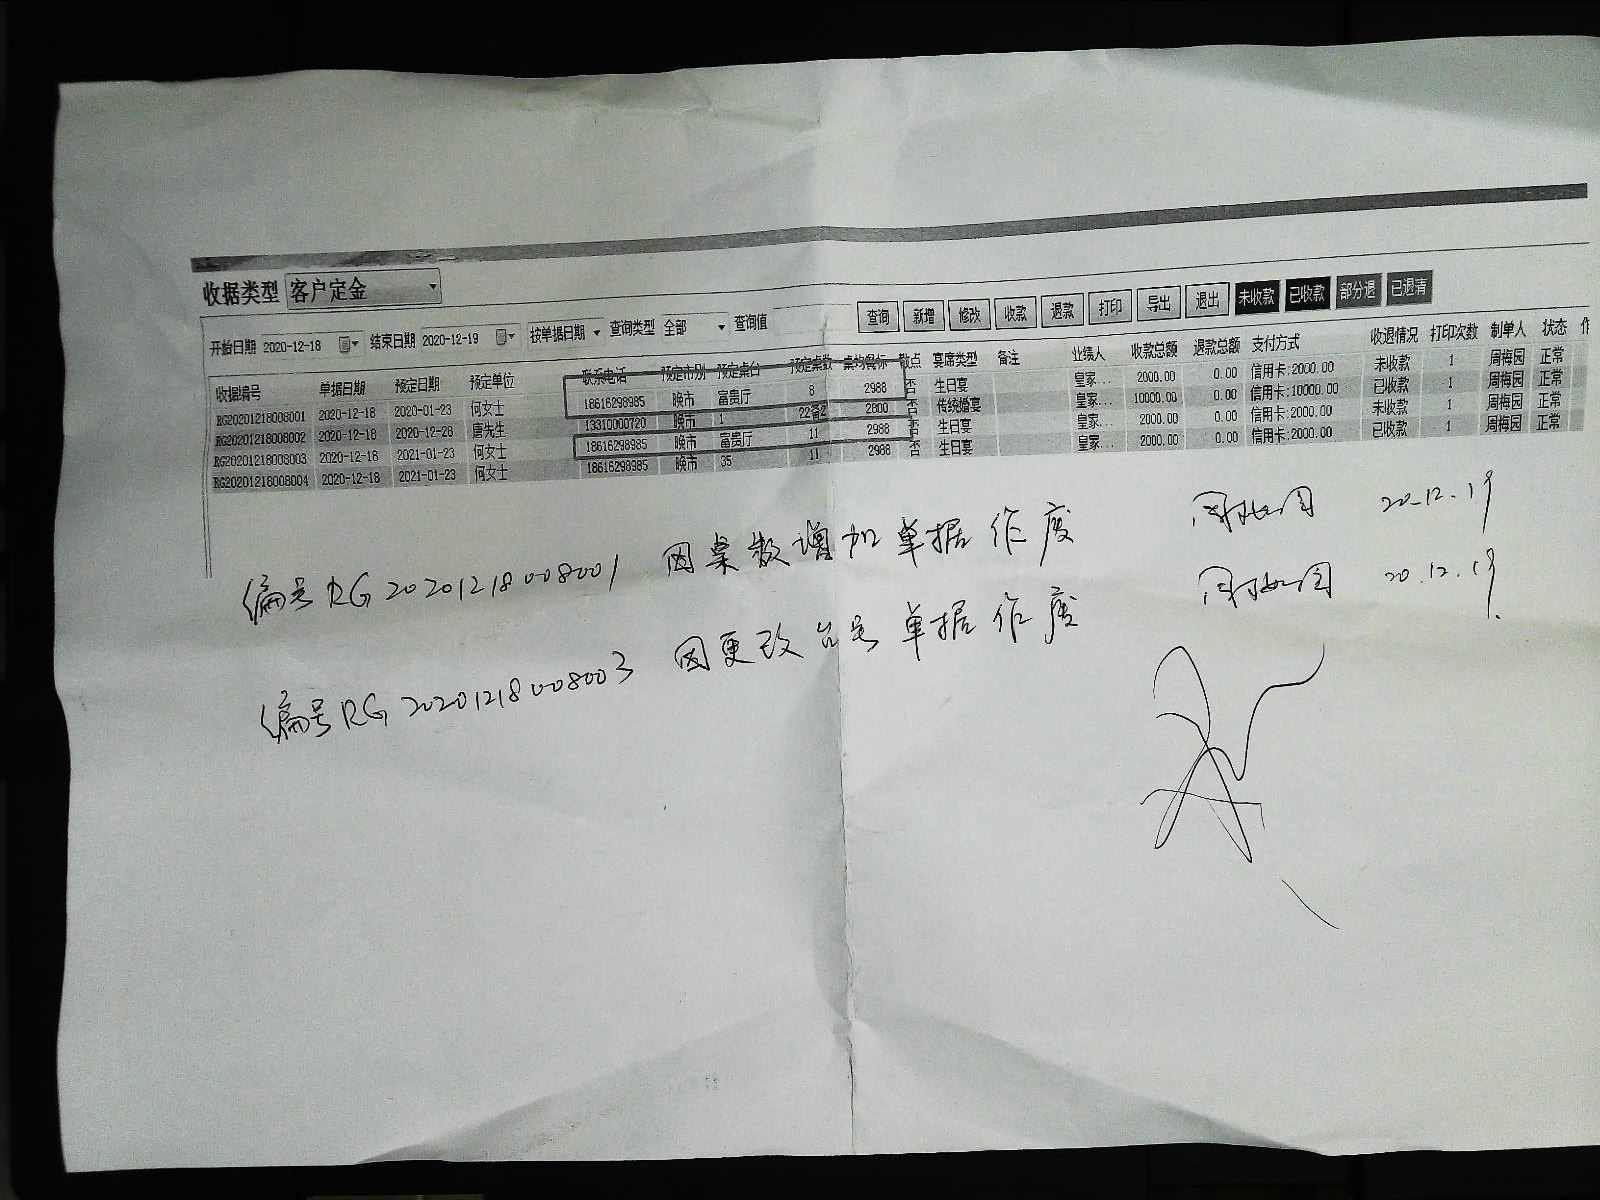 收据类型 客户定金
开始日期 2020-12-18 结束日期 2020-12-19 按单据日期 查询类型 全部 查询值 查询 新增 修改 收款 退款 打印 导出 退出 未收款 已收款 部分退 已退清
收据编号 单据日期 预定日期 预定单位 联系电话 预定市别 预定桌台 预定桌数 桌均餐标 散点 宴席类型 备注 业绩人 收款总额 退款总额 支付方式 收退情况 打印次数 制单人 状态 作
RG20201218008001 2020-12-18 2020-01-23 何女士 18616298985 晚市 富贵厅 8 2988 否 生日宴 皇家... 2000.00 0.00 信用卡:2000.00 未收款 1 周梅园 正常
RG20201218008002 2020-12-18 2020-12-28 唐先生 13310000720 晚市 1 22备2 2800 否 传统婚宴 皇家... 10000.00 0.00 信用卡:10000.00 已收款 1 周梅园 正常
RG20201218008003 2020-12-18 2021-01-23 何女士 18616298985 晚市 富贵厅 11 2988 否 生日宴 皇家... 2000.00 0.00 信用卡:2000.00 未收款 1 周梅园 正常
RG20201218008004 2020-12-18 2021-01-23 何女士 18616298985 晚市 35 11 2988 否 生日宴 皇家... 2000.00 0.00 信用卡:2000.00 已收款 1 周梅园 正常
编号RG20201218008001 因桌数增加单据作废 周梅园 20.12.19
编号RG20201218008003 因更改台号单据作废 周梅园 20.12.19